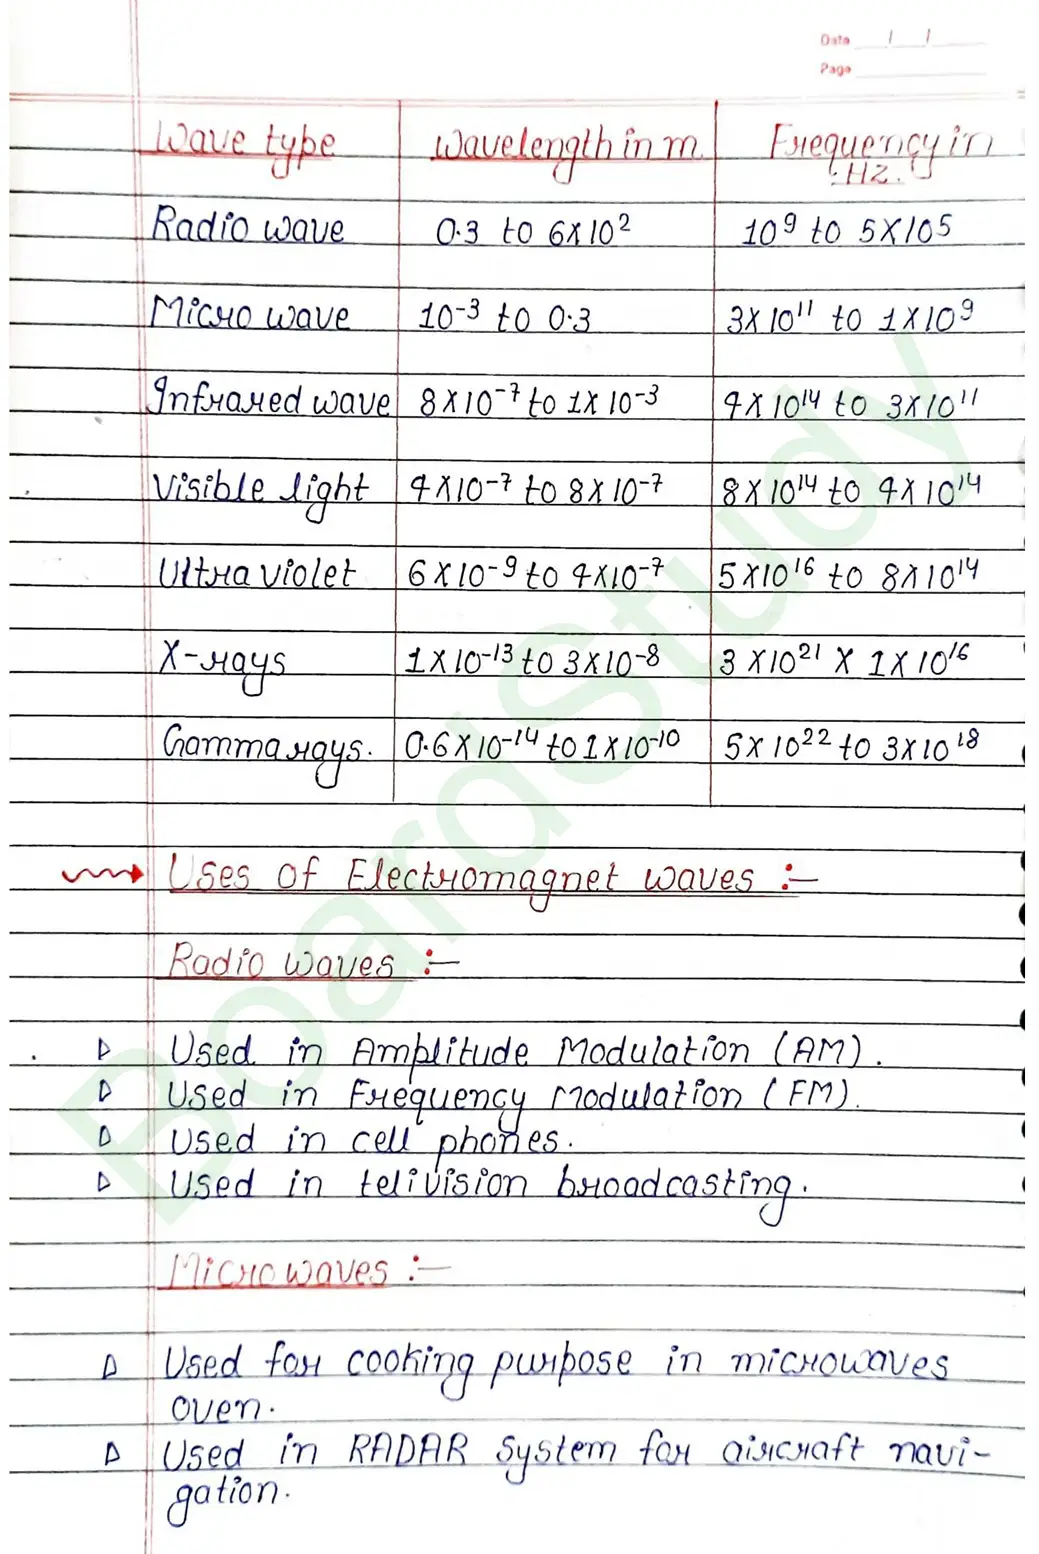 Date / /
Page
Wave type Wavelength in m. Frequency in
Hz.
Radio wave 0.3 to 6X10² 10⁹ to 5X10⁵
Micro wave 10⁻³ to 0.3 3X10¹¹ to 1X10⁹
Infrared wave 8X10⁻⁷ to 1X10⁻³ 4X10¹⁴ to 3X10¹¹
Visible light 4X10⁻⁷ to 8X10⁻⁷ 8X10¹⁴ to 4X10¹⁴
Ultra violet 6X10⁻⁹ to 4X10⁻⁷ 5X10¹⁶ to 8X10¹⁴
X-rays 1X10⁻¹³ to 3X10⁻⁸ 3X10²¹ X 1X10¹⁶
Gamma rays. 0.6X10⁻¹⁴ to 1X10⁻¹⁰ 5X10²² to 3X10¹⁸
Uses of Electromagnet waves :-
Radio waves :-
▷ Used in Amplitude Modulation (AM).
▷ Used in Frequency Modulation (FM).
▷ Used in cell phones.
▷ Used in telivision broadcasting.
Microwaves :-
▷ Used for cooking purpose in microwaves
oven.
▷ Used in RADAR system for aircraft navi-
gation.
BoardStudy